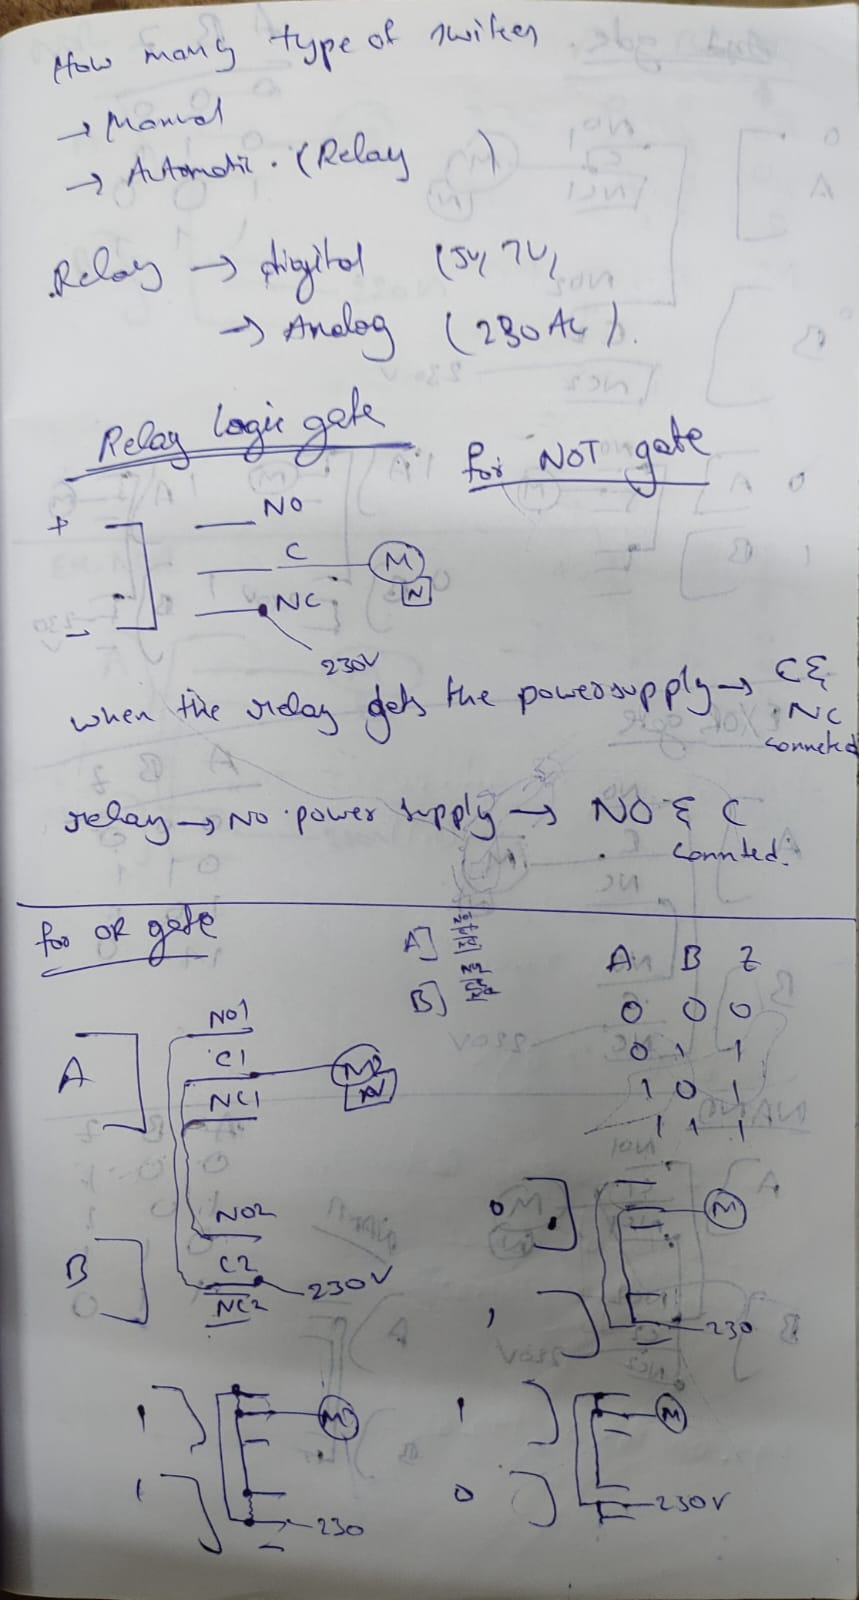 How many type of switches
→ Manual
→ Automatic. (Relay )
Relay → digital (5V, 7V,
→ Analog (230 AC).
Relay Logic gate
for NOT gate
+
NO
C
M
N
NC
-
230V
when the relay gets the power supply → C &
NC
connected
relay → No power supply → NO & C
connted.
for OR gate
A]
B]
A B Z
0 0 0
0 1 1
1 0 1
1 1 1
A
NO1
C1
NC1
M
N
B
NO2
C2
NC2
230V
0
1
M
230
1
1
M
230
1
0
M
230V